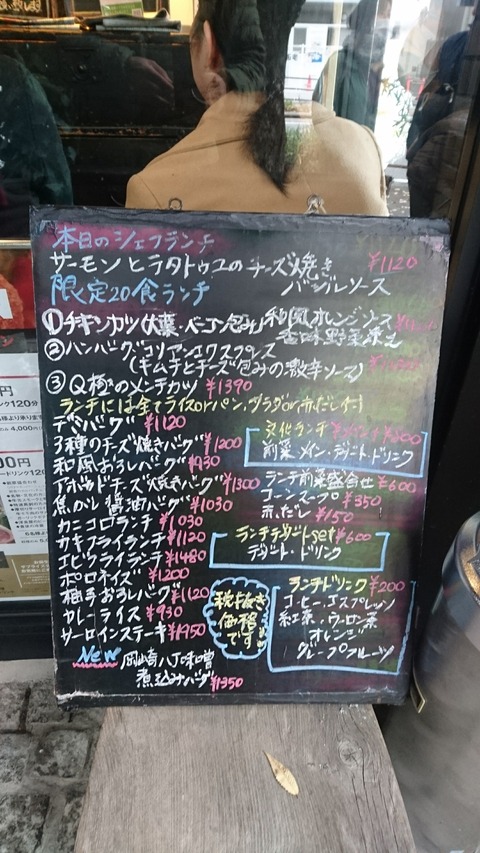 本日のシェフランチ
サーモンとラタトゥユのチーズ焼き ¥1120
バジルソース
限定20食ランチ
① チキンカツ(大葉・ベーコン包み)和風オレンジソース
香味野菜添え
② ハンバーグコリアンエクスプレス
(キムチとチーズ包みの激辛ソース)
③ Q極のメンチカツ ¥1390
ランチには全てライスorパン、サラダor赤だし付
デミバーグ ¥1120
3種のチーズ焼きバーグ ¥1200
和風おろしバーグ ¥930
アボカドチーズ焼きバーグ ¥1300
焦がし醤油バーグ ¥1030
カニコロランチ ¥1030
カキフライランチ ¥1120
エビフライランチ ¥1480
ボロネイズ ¥1200
梅チーズおろしバーグ ¥1120
カレーライス ¥930
サーロインステーキ ¥1950
New 岡崎八丁味噌
煮込みバーグ ¥1350
文化ランチ
前菜・メイン・デザート・ドリンク
ランチ前菜盛合せ ¥600
コーンスープ ¥350
赤だし ¥150
ランチデザートset ¥600
デザート・ドリンク
税抜き
価格
です
ランチドリンク ¥200
コーヒー・エスプレッソ
紅茶・ウーロン茶
オレンジ
グレープフルーツ